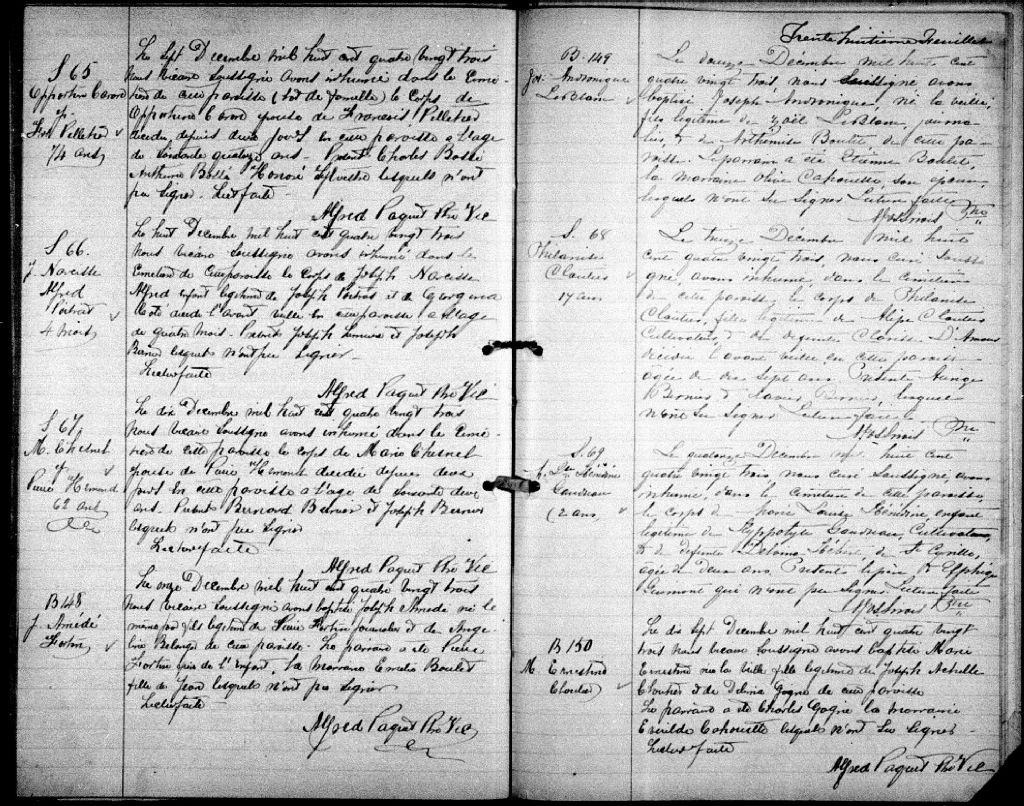 S 65
Opportune Caron
&
Frs Pelletier
74 ans
Le sept Decembre mil huit cent quatre vingt trois
nous vicaire soussigné avons inhumé dans le Cime-
tière de cette paroisse (lot de famille) le corps de
Opportune Caron epouse de Francois Pelletier
décédée depuis deux jours en cette paroisse a l'age
de soixante quatorze ans. Présent Charles Bossé
Anthime Bossé Honoré Sylvestre lesquels n'ont
pu signer. Lect faite
Alfred Paquet Ptre Vic
S 66.
J. Narcisse
Alfred
Poitras
4 mois
Le huit Decembre mil huit cent quatre vingt trois
nous vicaire soussigné avons inhumé dans le
Cimetière de cette paroisse le corps de Joseph Narcisse
Alfred enfant legitime de Joseph Poitras et de Georgina
Coté décédé l'avant veille en cette paroisse a l'age
de quatre mois. Présents Joseph et Joseph
Bernier lesquels n'ont pu signer.
Lecture faite
Alfred Paquet Ptre Vic
S 67,
M. Chesnet
&
Pierre Hemond
62 ans
Le dix Decembre mil huit cent quatre vingt trois
nous vicaire soussigné avons inhumé dans le Cime-
tière de cette paroisse le corps de Marie Chesnet
epouse de Pierre Hemond décédée depuis deux
jours en cette paroisse a l'age de soixante deux
ans. Présents Bernard Bernier et Joseph Bernier
lesquels n'ont pu signer
Lecture faite
Alfred Paquet Ptre Vic
B 148
J. Amédé
Fortin
Le onze Decembre mil huit cent quatre vingt trois
nous vicaire soussigné avons baptisé Joseph Amédé né le
même jour fils legitime de Pierre Fortin journalier et de Ange
line Belanger de cette paroisse. Le parrain a été Pierre
Fortin de l'enfant, la marraine Emelie Boulet
fille de Jean lesquels n'ont pu signer
Lecture faite
Alfred Paquet Ptre Vic
Trente huitième Feuillet
B. 149
Jos. Andronique
LeBlanc
Le douze Décembre mil huit cent
quatre vingt trois, nous soussigné avons
baptisé Joseph Andronique, né la veille,
fils légitime de Joël LeBlanc, journa-
lier, & de Arthémise Boutet de cette pa-
roisse. Le parrain a été Etienne Boulet,
la marraine Olive Cahouette, son épouse,
lesquels n'ont su signer. Lecture faite
Ptre
S. 68
Philanise
Cloutier
17 ans
Le treize Décembre mil huit
cent quatre vingt trois, nous curé soussi
gné, avons inhumé, dans le cimetière
de cette paroisse, le corps de Philanise
Cloutier, fille légitime de Alipe Cloutier
Cultivateur, & de défunte Clarisse D'Amour
décédée l'avant veille en cette paroisse
agée de dix sept ans. Présents
Bernier & Xavier Bernier, lesquels
n'ont su signer. Lecture faite
Ptre
S. 69
Hénédine
Gaudreau
(2 ans,
Le quatorze Décembre mil huit cent
quatre vingt trois nous curé soussigné, avons
inhumé, dans le cimetière de cette paroisse,
le corps de Marie Louise Hénédine enfant
légitime de Hyppolyte Gaudreau, Cultivateur,
& de défunte Délima Hébert de St Cyrille,
agée de deux ans. Présents le père &
qui n'ont pu signer. Lecture faite
Ptre
B 150
M. Ernestine
Cloutier
Le dix sept Decembre mil huit cent quatre vingt
trois nous vicaire soussigné avons baptisé Marie
Ernestine née la veille fille legitime de Joseph Achille
Cloutier et de Delvina Gagné de cette paroisse
Le parrain a été Charles Gagné la marraine
Exuilda Cahouette lesquels n'ont su signer.
Lecture faite
Alfred Paquet Ptre Vic